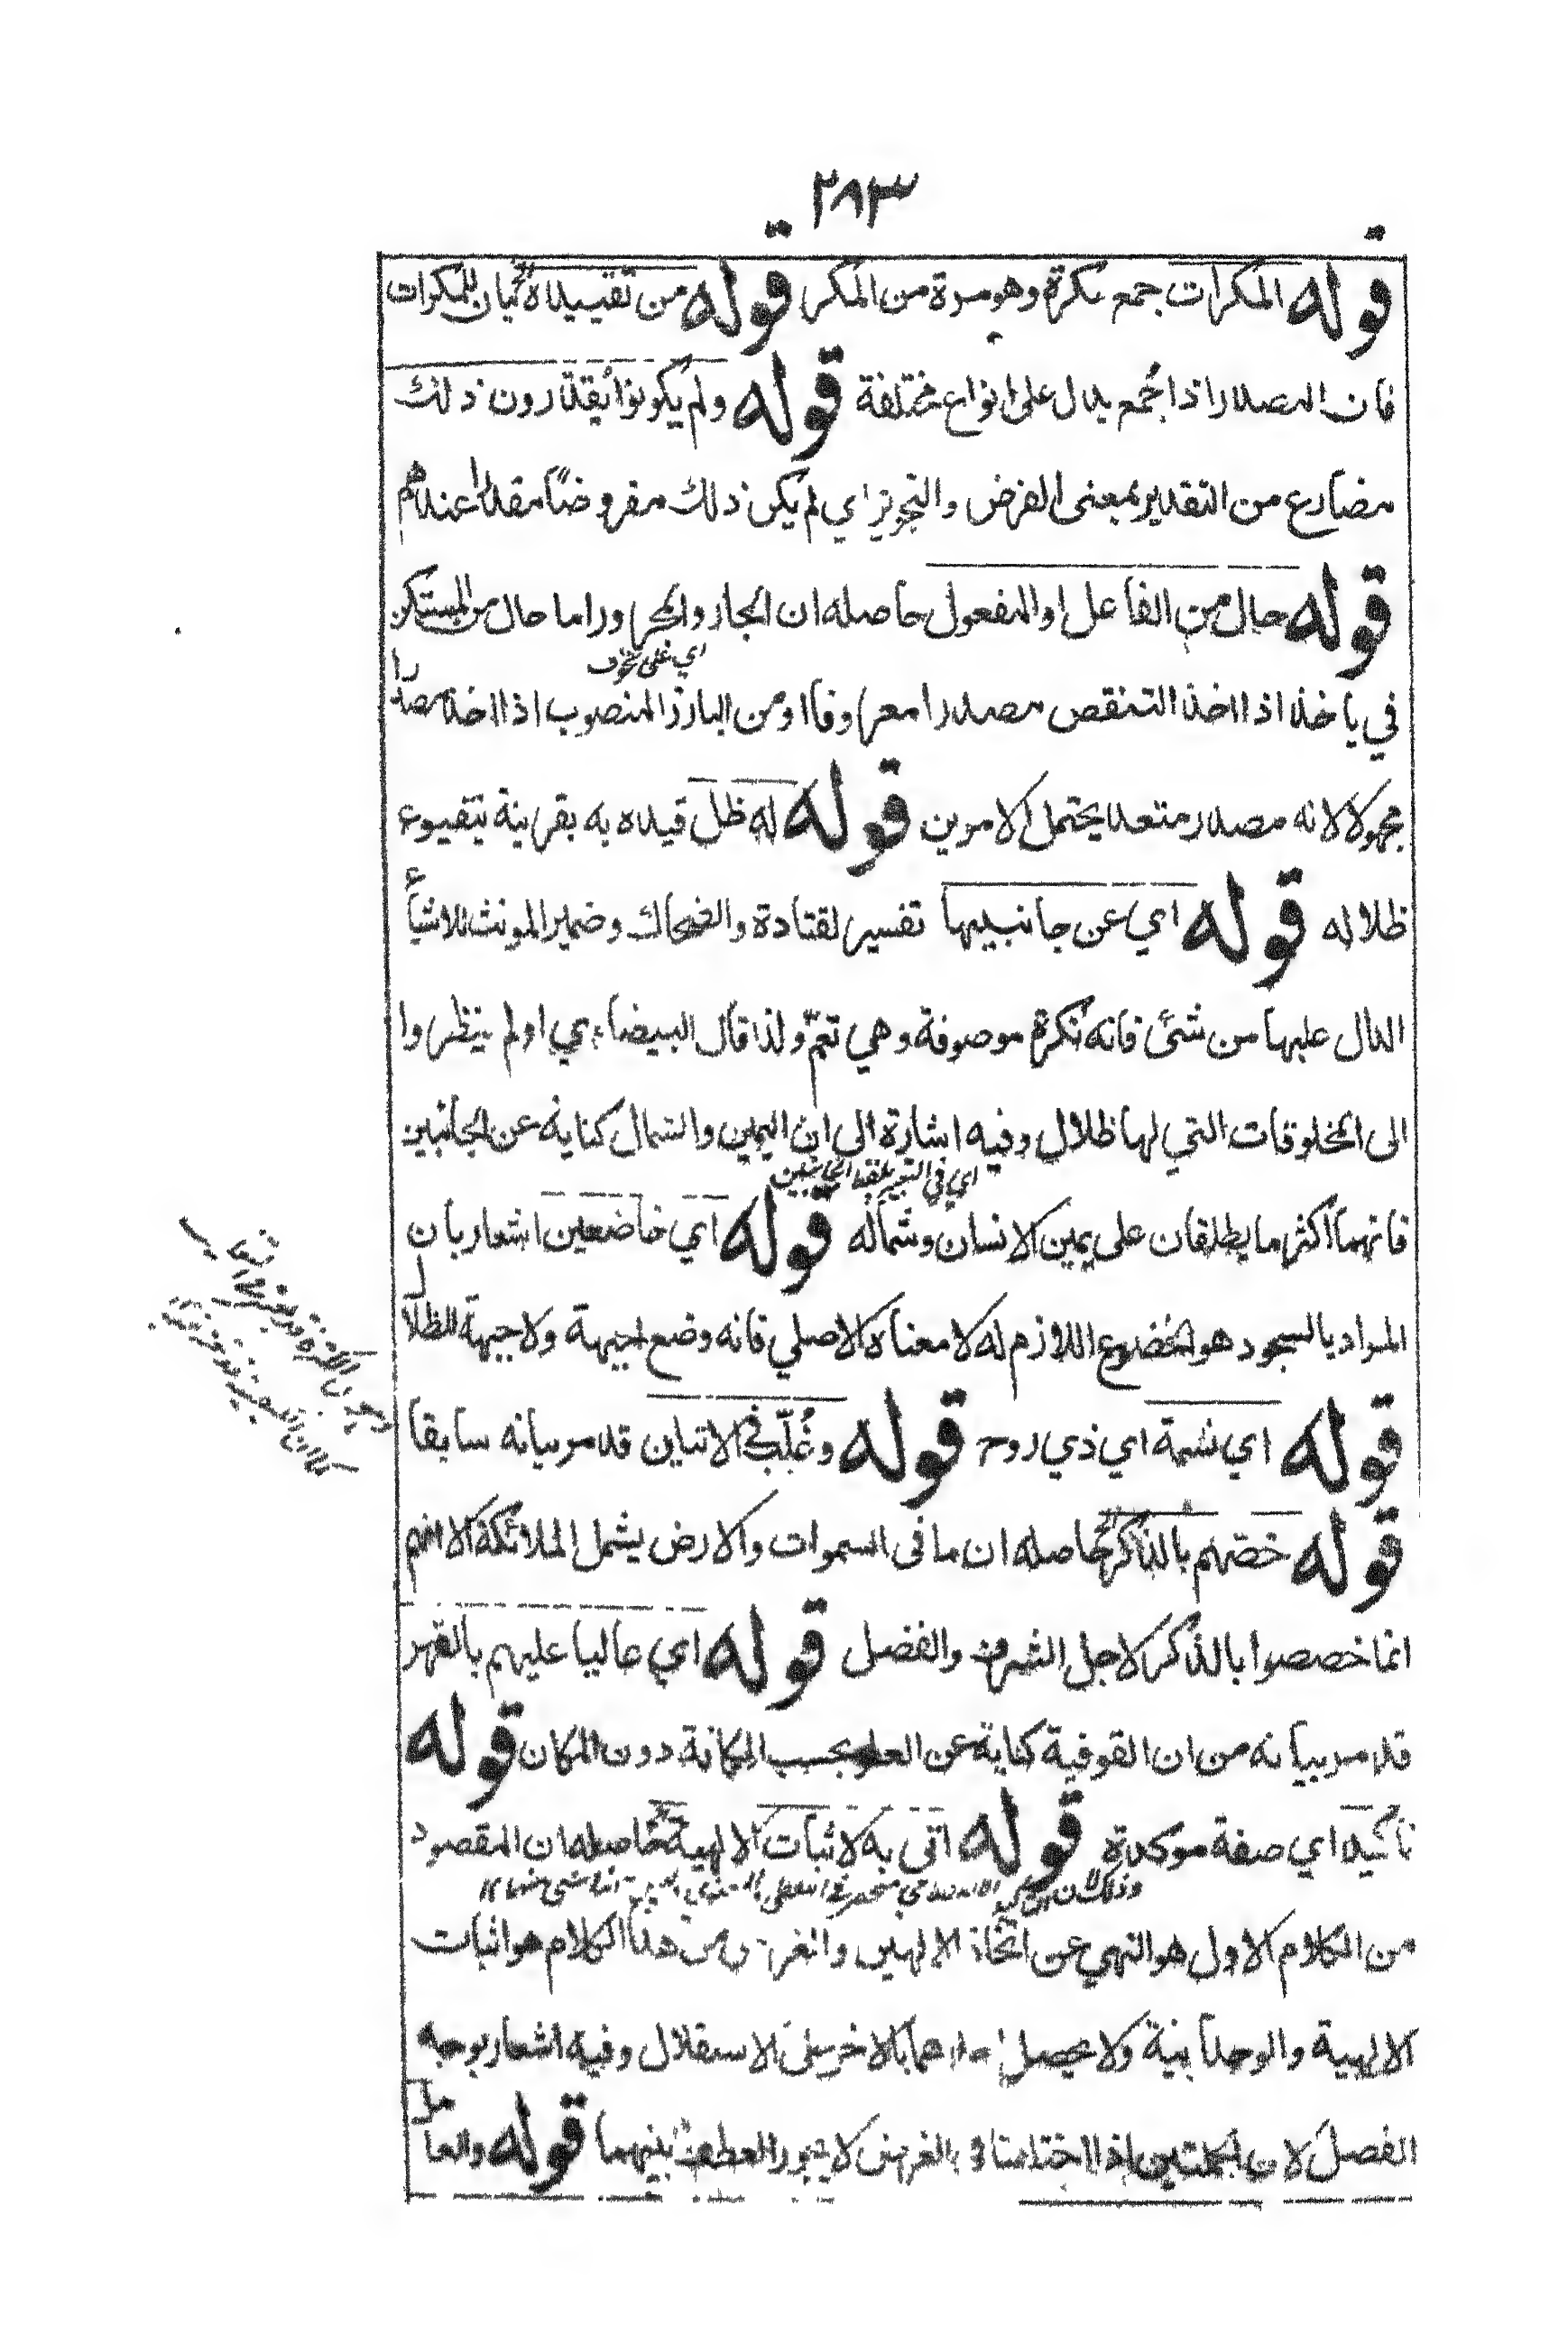 ٢٨٣
قوله المكرات جمع مكرة وهو مرة من المكر قوله من تقييده الخ بيان للمكرات
فان المصدر اذا جمع يدل على انواع مختلفة قوله ولم يكونوا يقدرون ذلك
مضارع من التقدير بمعنى الفرض والتجويز اي لم يكن ذلك مفروضا مقدرا عندهم
قوله حال من الفاعل او المفعول حاصله ان الجار والمجرور اما حال من المستكن
اي على تخوف
في ياخذ اذا اخذ التنقص مصدرا معروفا او من البارز المنصوب اذا اخذ مصدرا
مجهولا لانه مصدر متعد يحتمل الامرين قوله له ظل قيده به بقرينة يتفيؤ
ظلاله قوله اي عن جانبيها تفسير لقتادة والضحاك وضمير المونث للاشياء
الدال عليها من شئ فانه نكرة موصوفة وهي تعم ولذا قال البيضاوي اولم ينظروا
الى المخلوقات التي لها ظلال وفيه اشارة الى ان اليمين والشمال كناية عن الجانبين
فانهما اكثر ما يطلقان على يمين الانسان وشماله قوله اي خاضعين اشعار بان
المراد بالسجود هو الخضوع اللازم له لا معناه الاصلي فانه وضع الجبهة ولا جبهة للظلال
قوله اي نسمة اي ذي روح قوله وغلب في الاتيان قد مر بيانه سابقا
قوله خصهم بالذكر الخ حاصله ان ما في السموات والارض يشمل الملائكة الا انهم
انما خصصوا بالذكر لاجل الشرف والفضل قوله اي عاليا عليهم بالقهر
قد مر بيانه من ان الفوقية كناية عن العلو بحسب المكانة دون المكان قوله
تاكيد اي صفة موكدة قوله اتى به لاثبات الالهية الخ حاصله ان المقصود
من الكلام الاول هو النهي عن اتخاذ الالهين والغرض من هذا الكلام هو اثبات
الالهية والوحدانية ولا يحصل احدهما بالاخر على الاستقلال وفيه اشعار بوجه
الفصل لان الجملتين اذا اختلفتا في الغرض لا يجوز العطف بينهما قوله والعامل